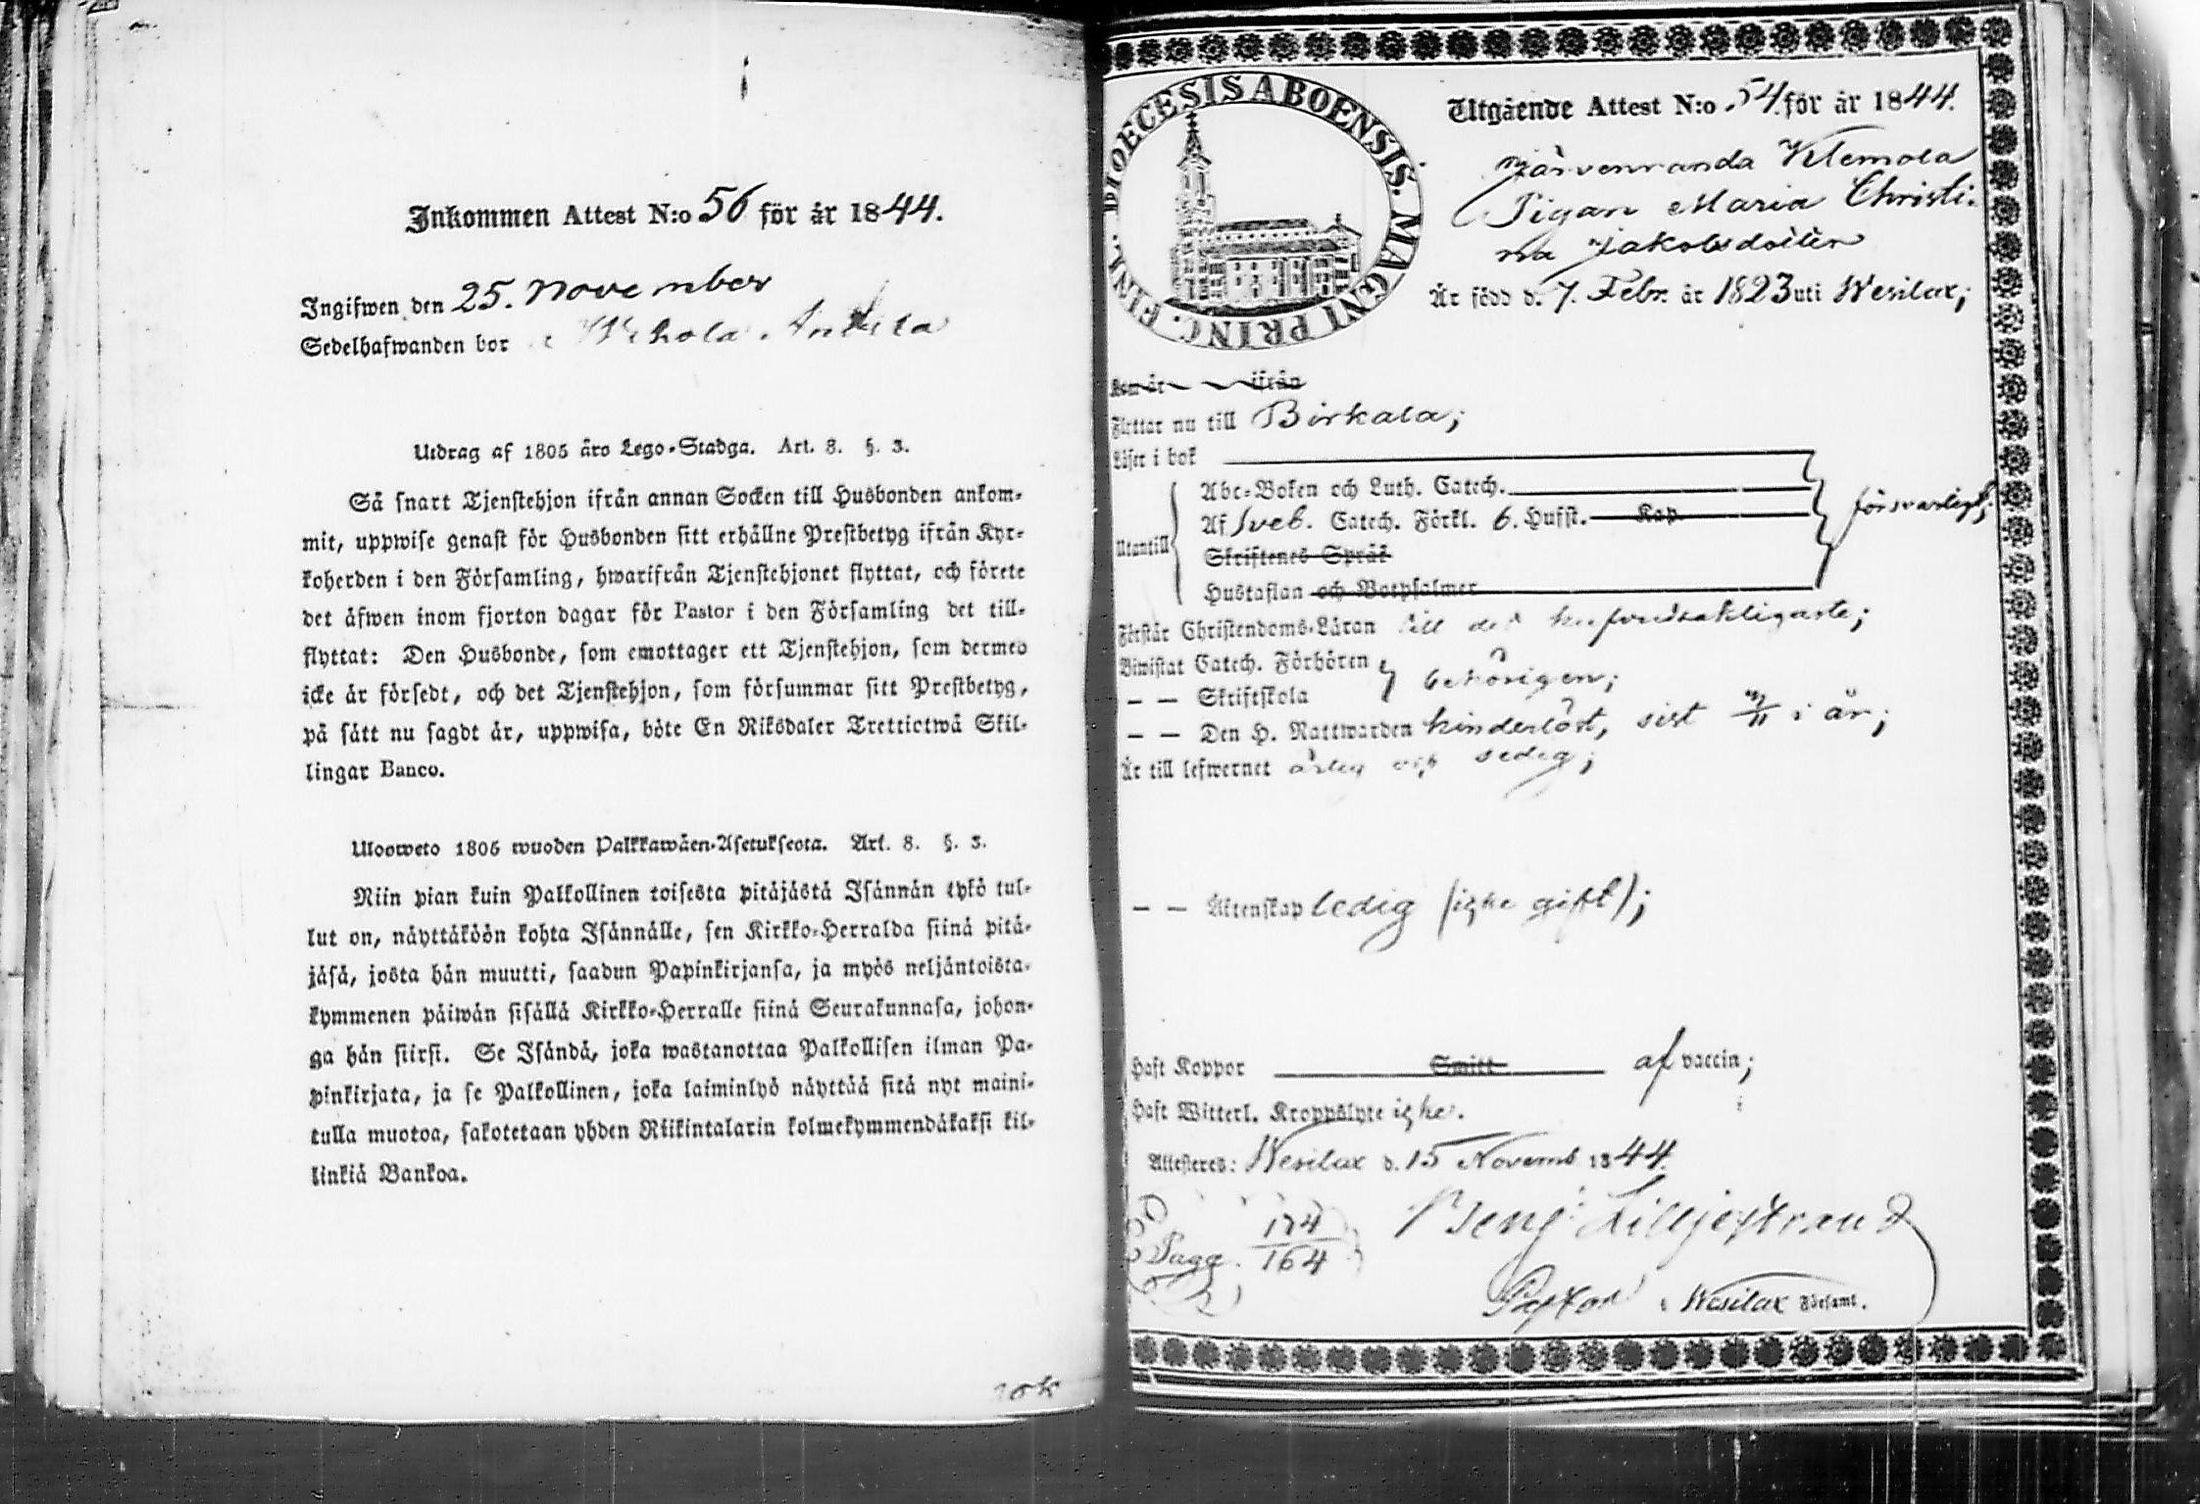 Inkommen Attest N:o 56 för år 1844.
Ingifwen den 25. November
Sedelhafwanden bor i Anttila
Utdrag af 1805 års Lego-Stadga. Art. 8. §. 3.
Så snart Tjenstehjon ifrån annan Socken till Husbonden ankom-
mit, uppwise genast för Husbonden sitt erhållne Prestbetyg ifrån Kyr-
koherden i den Församling, hwarifrån Tjenstehjonet flyttat, och förete
det äfwen inom fjorton dagar för Pastor i den Församling det till-
flyttat: Den Husbonde, som emottager ett Tjenstehjon, som dermed
icke är försedt, och det Tjenstehjon, som försummar sitt Prestbetyg,
på sätt nu sagdt är, uppwisa, böte En Riksdaler Trettiotwå Skil-
lingar Banco.
Ulosweto 1805 wuoden Palkkawäen-Asetuksesta. Art. 8. §. 3.
Niin pian kuin Palkollinen toisesta pitäjästä Isännän tykö tul-
lut on, näyttäköön kohta Isännälle, sen Kirkko-Herralda siinä pitä-
jäsä, josta hän muutti, saadun Papinkirjansa, ja myös neljäntoista-
kymmenen päiwän sisällä Kirkko-Herralle siinä Seurakunnasa, johon-
ga hän siirsi. Se Isändä, joka wastanottaa Palkollisen ilman Pa-
pinkirjata, ja se Palkollinen, joka laiminlyö näyttää sitä nyt maini-
tulla muotoa, sakotetaan yhden Riikintalarin kolmekymmendäkaksi kil-
linkiä Bankoa.
DIOECESIS ABOENSIS. MAGNI PRINC. FINL.
Utgående Attest N:o 54. för år 1844.
Järvenranda Klemola
Pigan Maria Christi-
na Jakobsdotter
Är född d. 7. Febr. år 1823 uti Wesilax;
Kom år ifrån
Flyttar nu till Birkala;
Läser i bok
Abc-Boken och Luth. Catech.
Utantill Af Sveb. Catech. Förkl. 6. Hufst. Kap. försvarligt;
Skriftenes Språk
Hustaflan och Botpsalmer
Förstår Christendoms-Läran till det hufvudsakligaste;
Biwistat Catech. Förhören
— — Skriftskola behörigen;
— — Den H. Nattwarden hinderlöst, sist i år;
Är till lefwernet ärlig och sedig;
— — Äktenskap ledig (icke gift);
Haft Koppor Smitt af vaccin;
Haft Witterl. Kroppslyte icke.
Attesteres: Wesilax d. 15 Novemb 1844.
Pagg. 174
164
Benj: Lilljestrand
Pastor i Wesilax Församl.